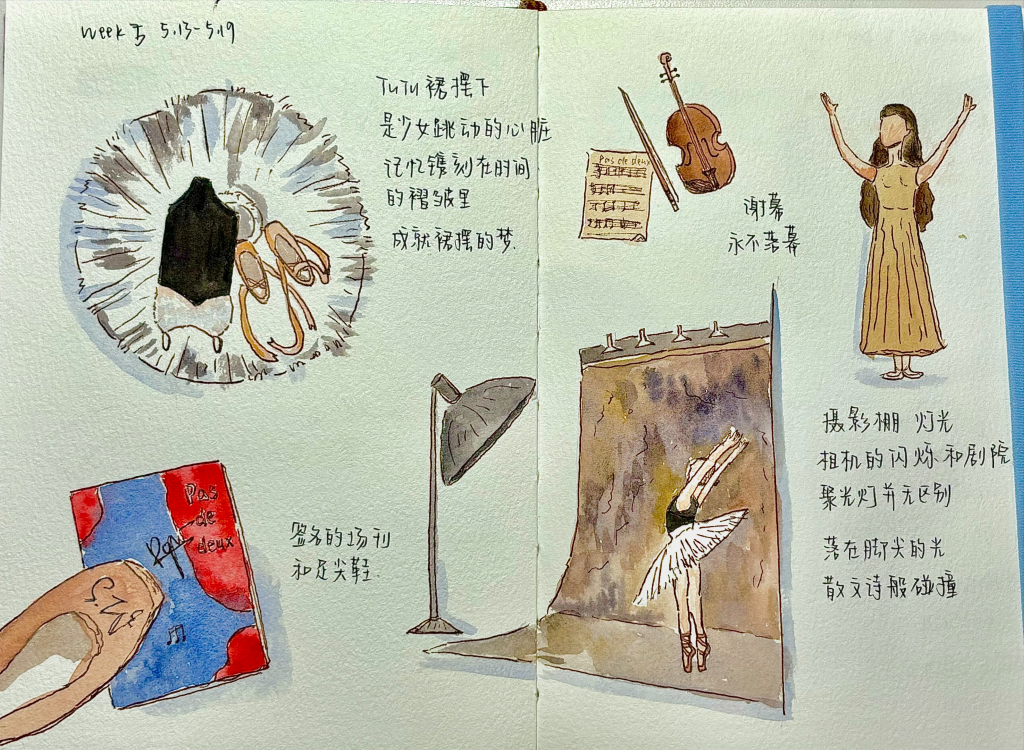 week 5 5.13-5.19
TUTU裙摆下
是少女跳动的心脏
记忆镌刻在时间
的褶皱里
成就裙摆的梦.
Pas de deux
谢幕
永不落幕
摄影棚 灯光
相机的闪烁和剧院
聚光灯并无区别
落在脚尖的光
散文诗般碰撞
Pas
de
deux
签名的场刊
和足尖鞋.